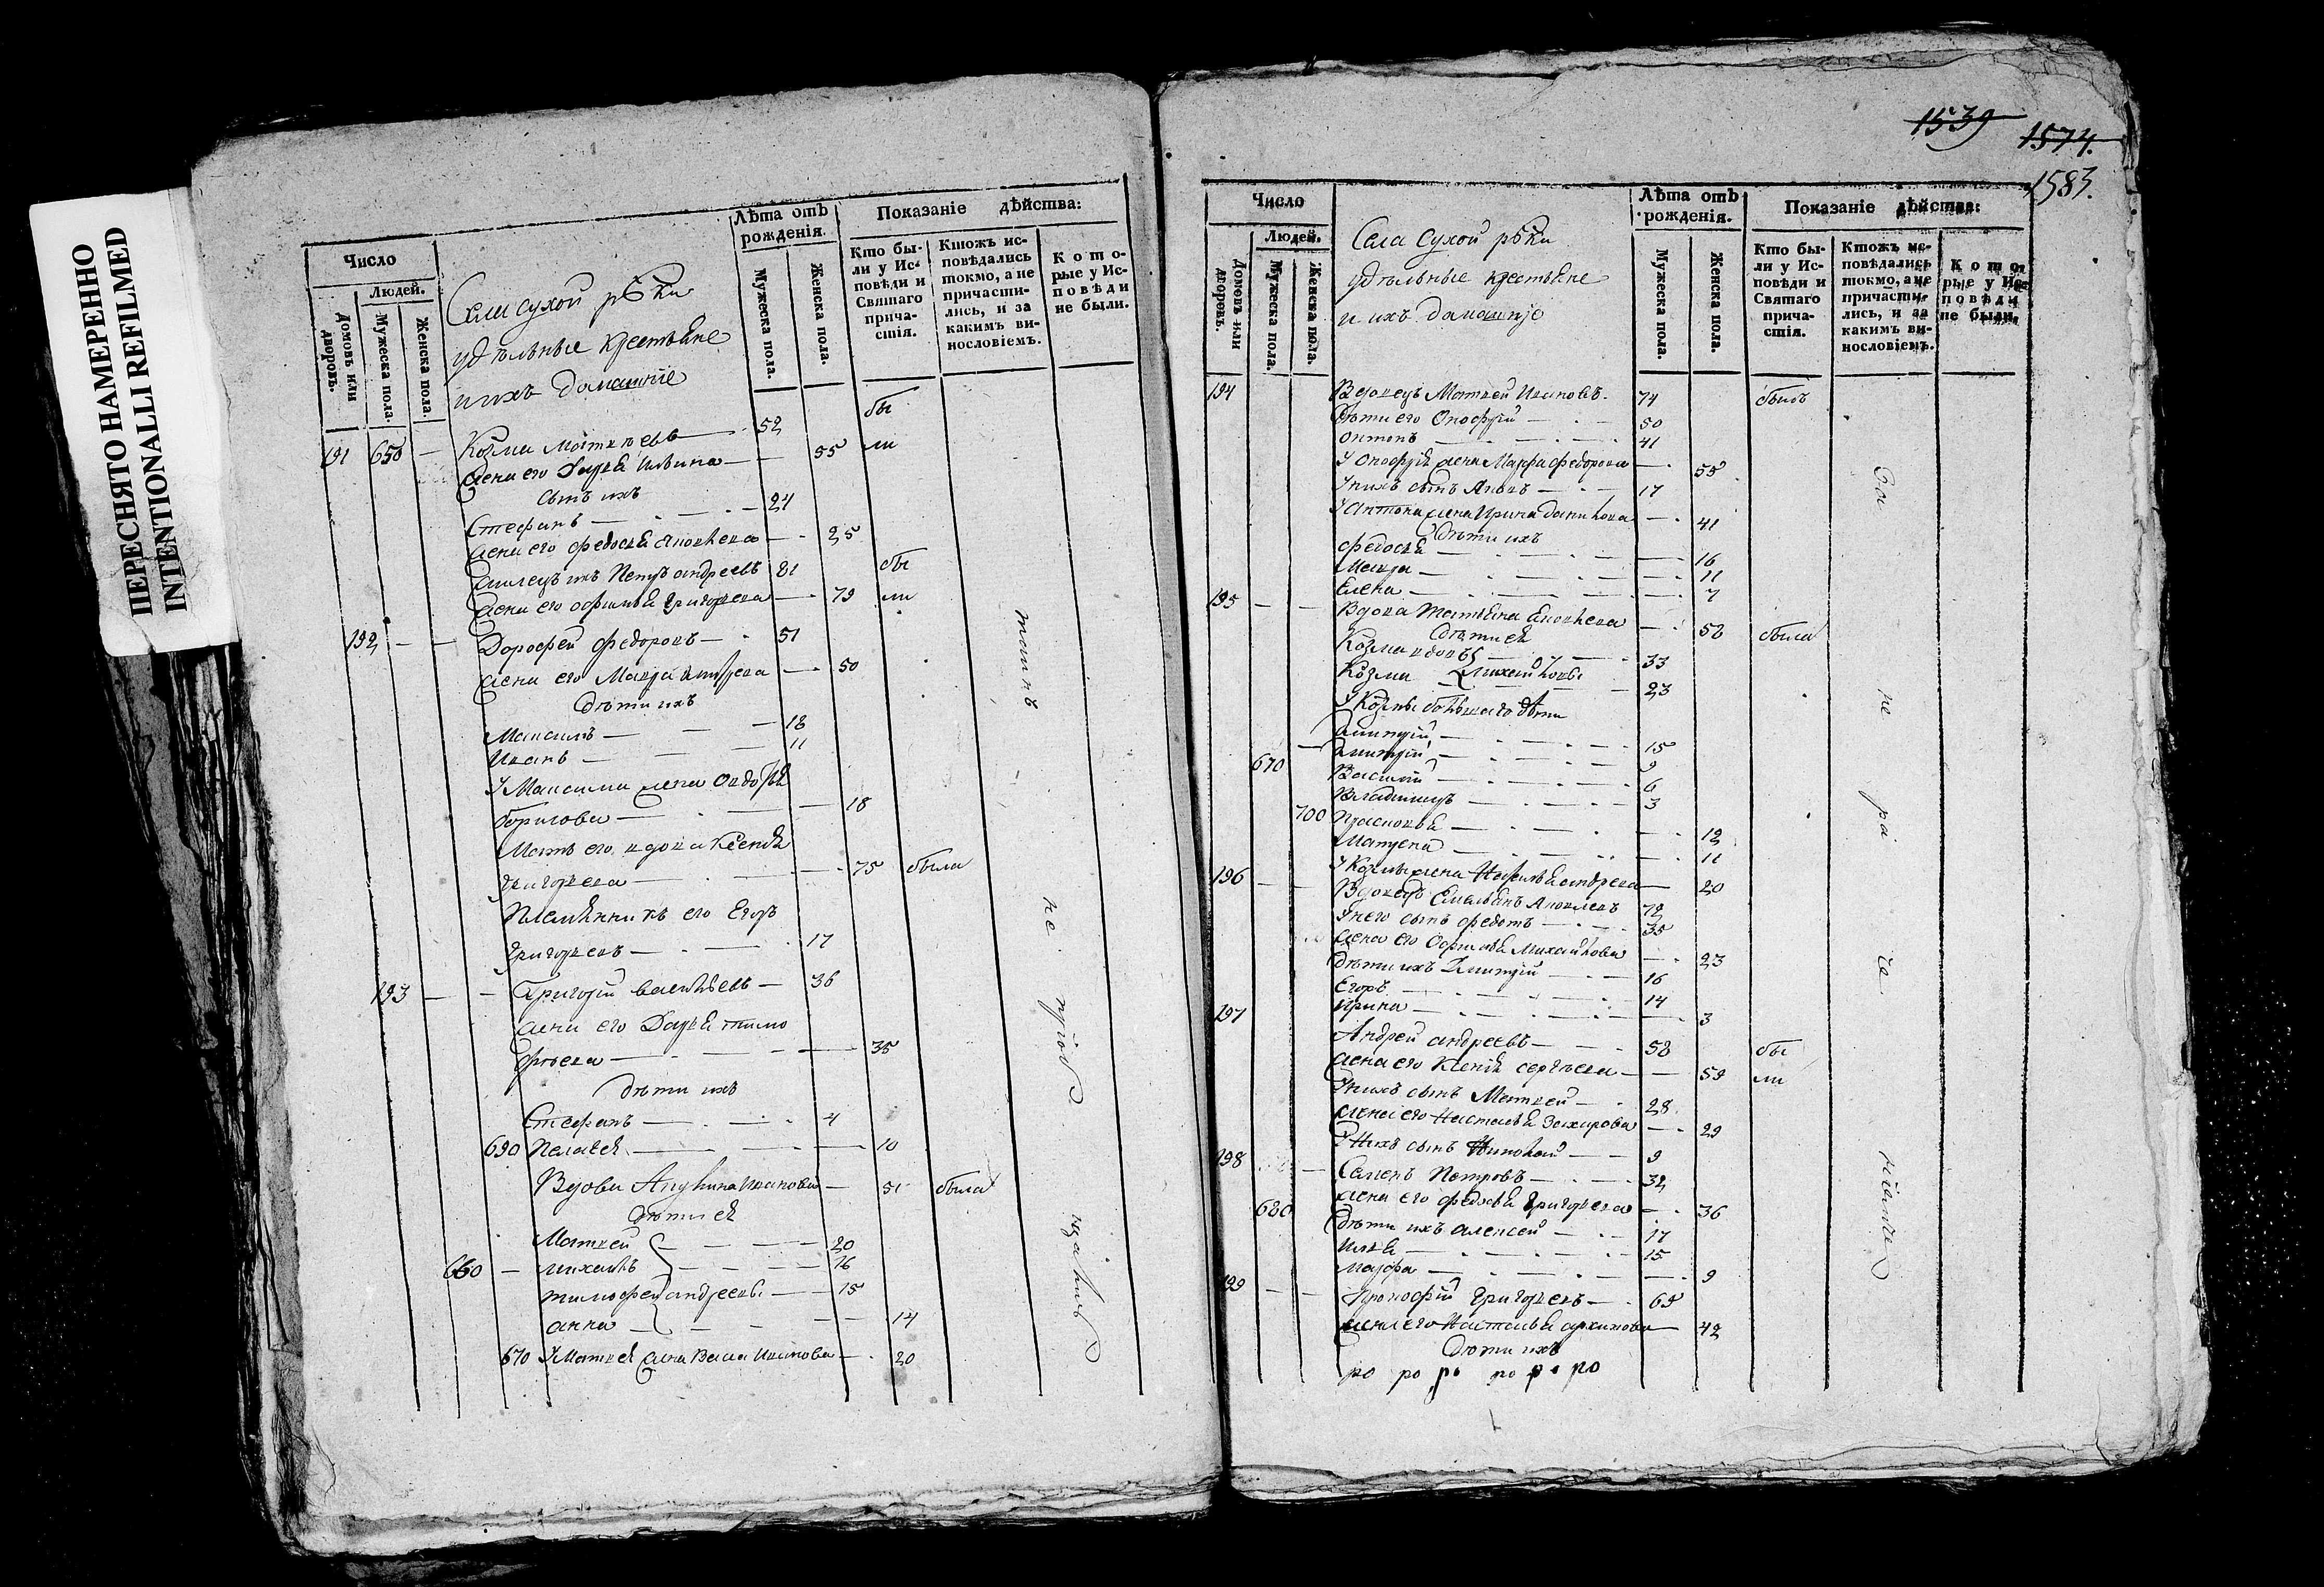 ПЕРЕСНЯТО НАМЕРЕННО
INTENTIONALLI REFILMED
Число
Людей.
Домовъ или дворовъ.
Мужеска пола.
Женска пола.
Села Сухой рѣки
удѣльные крестьяне
и ихъ домашніе
Лѣта отъ рожденія.
Мужеска пола.
Женска пола.
Показаніе дѣйства:
Кто были у Исповѣди и Святаго причастія.
Ктожъ исповѣдались токмо, а не причастились, и за какимъ винословіемъ.
Которые у Исповѣди не были.
191 650 — Козма Матвѣевъ — 52 бы
жена его Дарья Ильина — 55 ли
сынъ ихъ
Стефанъ — 21
жена его Федосья Яковлева — 25
Петръ андреевъ 81 бы
жена его Григорьева — 79 ли
192 — — Дорофей Федоровъ — 51
жена его Мавра — 50
дѣти ихъ
Максимъ — 18
Иванъ — 11
У Максима жена
борисова — 18
Мать его вдова Ксенія
григорьева — 75 была
Племянникъ его Егоръ
григорьевъ — 17
193 — — Григорій васильевъ — 36
жена его Дарья тимо
фѣева — 35
дѣти ихъ
Стефанъ — 4
690 Пелагея — 10
Вдова Акулина Иванова — 51 была
дѣти ея
Матвей — 20
660 — михаилъ — 16
тимофей андреевы — 15
анна — 14
670 У Матвея жена Васса Иванова — 20
не
1539
1574.
1583.
Число
Людей.
Домовъ или дворовъ.
Мужеска пола.
Женска пола.
Села Сухой рѣки
удѣльные крестьяне
и ихъ домашніе
Лѣта отъ рожденія.
Мужеска пола.
Женска пола.
Показаніе дѣйства:
Кто были у Исповѣди и Святаго причастія.
Ктожъ исповѣдались токмо, а не причастились, и за какимъ винословіемъ.
Которые у Исповѣди не были.
194 Вдовецъ Матвей Ивановъ. 74 былъ
Дѣти его Онофрій — 50
антонъ — 41
У Онофрія жена Марфа федорова — 55
У нихъ сынъ Яковъ — 17
У Антона жена Ирина данилова — 41
Дѣти ихъ
федосья — 16
Мавра — 11
Елена — 7
195 — — Вдова Татьяна Яковлева — 52 была
дѣти ея
Козма вдовъ — 33
Козма михайловы — 23
У Козмы большаго дѣти
Димитрій — 15
670 — Димитрій — 9
Василій — 6
Владимиръ — 3
700 Прасковья — 12
Матрена — 11
У Козмы жена андреева — 20
196 — — Вдовецъ Емельянъ Яковлевъ 72
У него сынъ федотъ — 35
жена его Михайлова — 23
дѣти ихъ Димитрій — 16
Егоръ — 14
Ирина — 3
197 Андрей андреевъ — 58 бы
жена его Ксенія сергѣева — 59 ли
У нихъ сынъ Матвей — 28
жена его Наталья Захарова — 29
У нихъ сынъ Николай — 9
198 — Семенъ Петровъ — 32
жена его федосья Григорьева — 36
680 дѣти ихъ алексей — 17
Илья — 15
марфа — 9
199 — — Прокофій Григорьевъ — 65
жена его Наталья архипова — 42
Дѣти ихъ
ро ро ро ро ро ро
За
не
ра